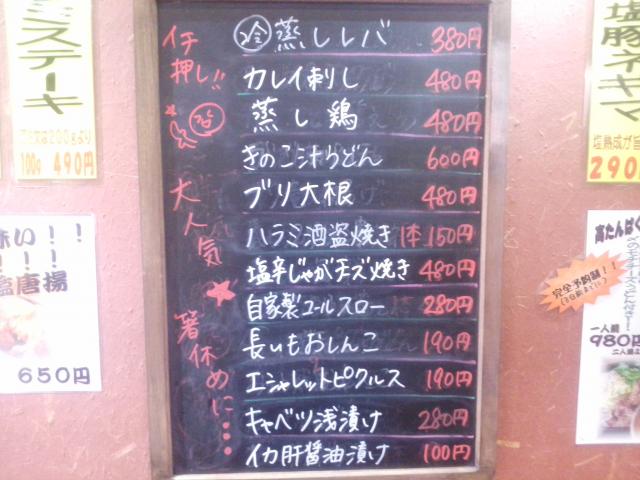 イチ押し!!
㋹ 蒸しレバ 380円
カレイ刺し 480円
蒸し鶏 480円
きのこ汁うどん 600円
大人気
ブリ大根 480円
ハラミ酒盗焼き 1本 150円
塩辛じゃがチーズ焼き 480円
箸休めに・・・
自家製コールスロー 280円
長いもおしんこ 190円
エシャレットピクルス 190円
キャベツ浅漬け 280円
イカ肝醤油漬け 100円
ステーキ
200gより
100g 490円
味い!!
!!!
塩唐揚
650円
塩豚ネギマ
塩熟成が旨
290
高たんぱく
完全予約制!!
一人鍋
980円
二人鍋